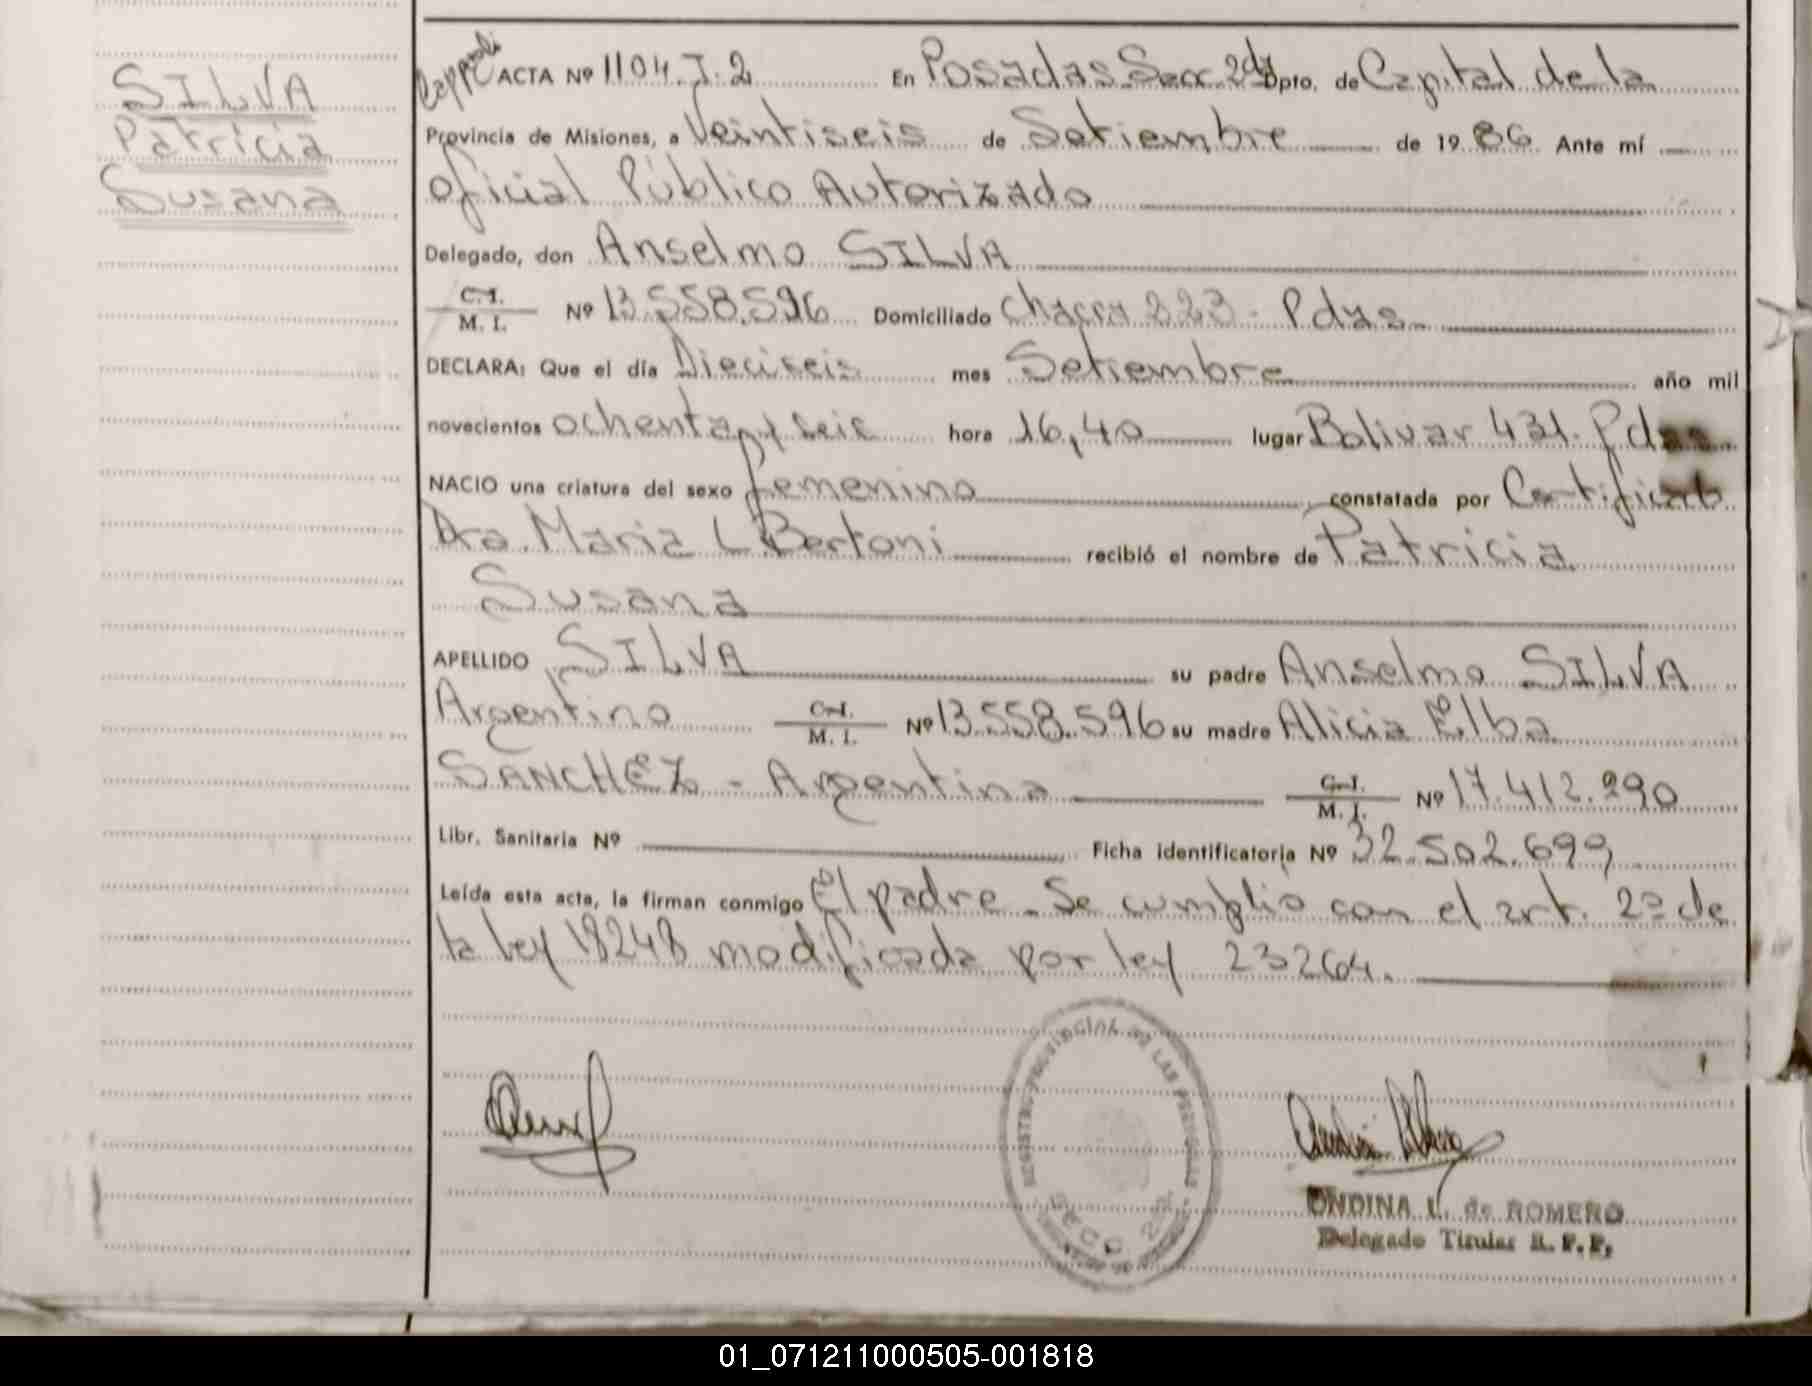 SILVA
Patricia
Susana
ACTA Nº 1104. T. 2 En Posadas Secc 2da Dpto. de Capital de la
Provincia de Misiones, a Veintiseis de Setiembre de 19 86 Ante mí
oficial Público Autorizado
Delegado, don Anselmo SILVA
C. I.
M. I. Nº 13.558.596 Domiciliado Chacra 223 - Pdas.
DECLARA: Que el día Dieciseis mes Setiembre año mil
novecientos ochenta y seis hora 16,40 lugar Bolivar 431. Pdas.
NACIO una criatura del sexo femenino constatada por Certificado
Dra. Maria L Bertoni recibió el nombre de Patricia
Susana
APELLIDO SILVA su padre Anselmo SILVA
Argentino C. I.
M. I. Nº 13.558.596 su madre Alicia Elba
SANCHEZ - Argentina C. I.
M. I. Nº 17.412.990
Libr. Sanitaria Nº Ficha identificatoria Nº 32.502.699
Leída esta acta, la firman conmigo El padre - Se cumplio con el art. 2º de
la ley 18248 modificada por ley 23264.
REGISTRO PROVINCIAL DE LAS PERSONAS
SECC. 2a
ONDINA L. de ROMERO
Delegado Titular R. P. P.
01_071211000505-001818